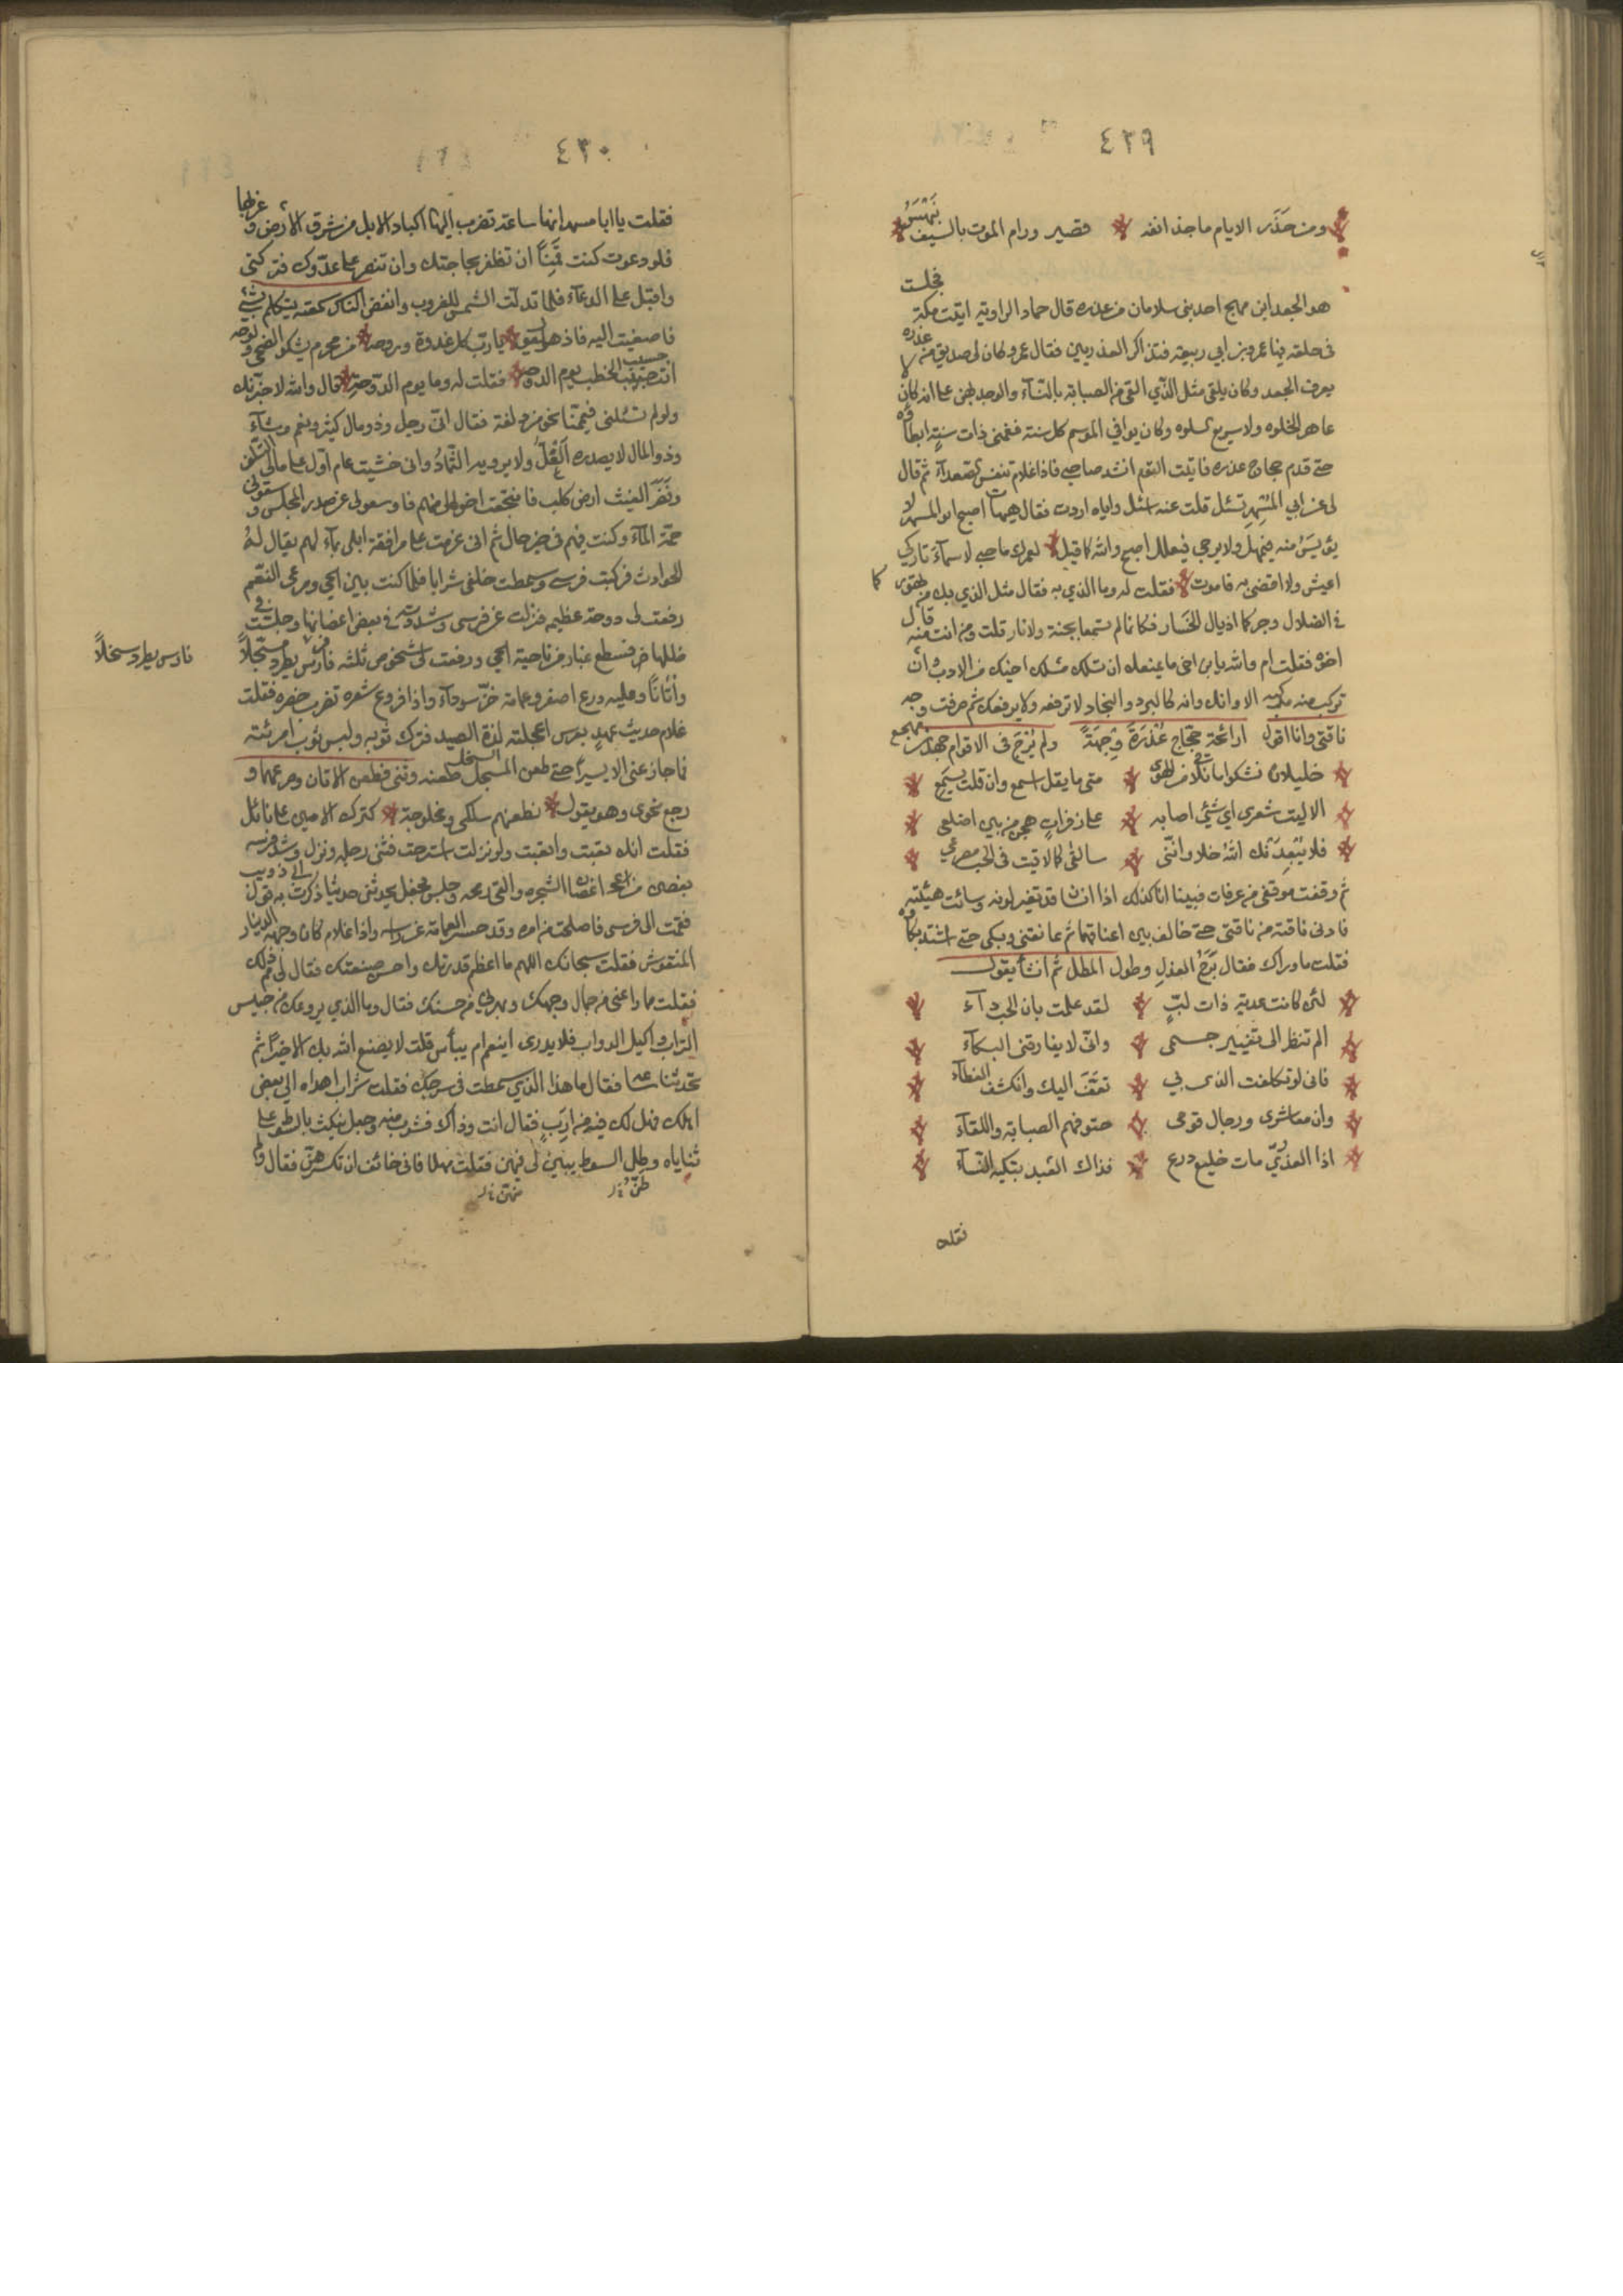 ٤٢٩
ومن حَذَرِ الايام ما جذ انفه قصير ورام الموت بالسيف بَيْهَسُ
هو الجعد ابن مهجع احد بنى سلامان من عذره قال حماد الراوية اتيت مكة فجلست
فى حلقة فيها عمر بن ابي ربيعة فتذاكر العذريين فقال عمر وكان لى صديق من عذره
يعرف الجعد وكان يلقى مثل الذي القى من الصبابة بالنسآء والوجد بهن على انه كان لا
عاهر الخلوه ولا سريع السلوه وكان يوافي الموسم كل سنة فغمنى ذات سنةٍ ابطاؤه
حتى قدم حجاج عذره فاتيت القوم انشد صاحبي فاذا غلام تنفس الصعدآء ثم قال
لى عن ابي المُسْهِر تسئل قلت عنه اسئل واياه اردت فقال هيهات اصبح ابو المسهر لا
يؤيَسُ منه فيهمل ولا يرجى فيعلل اصبح والله كما قيل لعمرك ما حبي لاسمآءَ تاركي
اعيش ولا اقضى به فاموت فقلت له وما الذي به فقال مثل الذي بك من تهوركما
فى الضلال وجركما اذيال الخسار فكانما لم تسمعا بجنة ولا نار قلت ومن انت منه قال
اخوه فقلت ام والله يا بن اخى ما يمنعك ان تسلك مسلك اخيك من الادب وان
تركب منه مركبه الا وانك وانه كالبرد والبجاد لا ترقعه ولا يرقعك ثم صرفت وجه
ناقتى وانا اقول ارائحة حجّاج عُذْرَةَ وِجْهَةً ولم يَرُحْ فى الاقوام جعد بن مهجع
خليلان نشكو ما نلاقى من الهوى متى ما يقل اسمع وان قلت يسمع
الا ليت شعري اي شيئ اصابه على زفراتٍ هجن من بين اضلعى
فلا يُبْعِدَنْك اللهُ خلا وانّنى سالقى كما لاقيت فى الحب مصرعي
ثم وقفت موقفى من عرفات فبينا انا كذلك اذا انسان قد تغير لونه وسائت هيئته
فادنى ناقته من ناقتى حتى خالف بين اعناقهما ثم عانقنى وبكى حتى اشتد بكاؤه
فقلت ما وراك فقال بَرَحُ العذلِ وطول المطل ثم انشأ يقول
لئن كانت عدية ذات لبٍّ لقد علمت بان الحب دآء
الم تنظر الى تغيير جسمى وانّى لا يفارقنى البكآء
فانى لو تكلفت الذى بي تعفّف اليك وانكشف الغطآء
وان معاشرى ورجال قومى حتوفهم الصبابة واللقآء
اذا العذريّ مات خليع درع فذاك العبد تبكيه النسآء
فقلت
٤٣٠
فقلت يا ابا مسهر انها ساعة تضرب اليها اكباد الابل من شرق الارض وغربها
فلو دعوت كنت قَمِنًا ان تظفر بحاجتك وان تنصر على عدّوك فتركنى
واقبل على الدعآء فلما تدلت الشمس للغروب وانفض الناس سمعته يتكلم بشئ
فاصغيت اليه فاذ هو يقول يا ربّ كل غدوة وروحه من محرم يشكو الضحى ولوحه
انت حسيب الخطب يوم الدوحه فقلت له وما يوم الدّوحةِ قال والله لاخبرّنك
ولو لم تسئلنى فيمّمنا نحو مزدلفة فقال انّى رجل وذو مال كثير ونعم وشآء
وذو المال لا يصدره القُلُّ ولا يرويه الثّمادُ وانى خشيت عام اوّل على مالى التلف
ونَفَرَ الغيث ارض كلب فانتجعت اخوالى منهم فاوسعوا لى عن صدر المجلس وسقونى
جمّة المآء وكنت فيهم فى خير حال ثم انى عزمت على مرافقة ابلى بمآء لهم يقال لهُ
الحوادث فركبت فرسى وسمطت خلفى شرابا فلما كنت بين الحي ومرعى النعم
رفعت لى دوحة عظيمه فنزلت عن فرسى وشددته فى بعض اغصانها وجلست فى
ظلها فسطع غبار من ناحية الحي ورفعت لى شخوص ثلثه فارس يطرد مسحّلاً
واتانًا وعليه درع اصفر وعمامة خزّ سودآء واذا فروع شعره تضرب خصره فقلت
غلام حديث عهدٍ بعرس اعجلته لذة الصيد فترك ثوبه ولبس ثوب امرئته
فما جاز عنى الا يسيرا حتى طعن المسحل وثنى فطعن الاتان وصرعهما و
رجع نحوى وهو يقول نطعنهم سلكى ومخلوجة كرّك لامين على نابل
فقلت انك تعبت واتعبت ولو نزلت استرحت فثنى رجله ونزل وشد فرسه
بغصن من اغصان الشجره والقى رمحه وجلس فجعل يحدثنى حديثا ذكرت به قول ابى ذويب
فقمت الى فرسى فاصلحت من امره وقد حسر العمامة عن راسه واذا غلام كان وجهه الدينار
المنقوش فقلت سبحانك اللهم ما اعظم قدرتك واحسن صنعتك فقال لى مم ذلك
فقلت مما راعنى من جمال وجهك وبهرنى من حسنك فقال وما الذي يروعك من حبيس
التراب واكيل الدواب فلا يدرى اينعم ام يبأس قلت لا يصنع الله بك الا خيرًا ثم
تحدثنا ساعه فقال ما هذا الذي سمطت فى سرجك فقلت شراب اهداه الى بعض
اهلك فهل لك فيه من اربٍ فقال انت وذاك فشرب منه وجعل ينكث بالسوط على
ثناياه وظل السوط يبين لى فيهن فقلت مهلا فانى خائف ان تكسرهنّ فقال ولم
فارس يطرد سخلاً